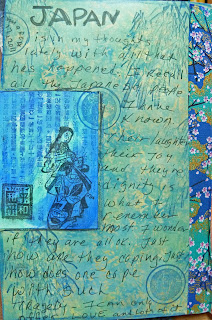 JAPAN
is in my thoughts
lately with all that
has happened. I recall
all the Japanese people
I have
known.
Their laughter
their Joy
and they're
dignity is
what I
remember
most I wonder
if they are all ok. Just
how are they coping, Just
how does one cope
with such
tragedy. I can only
LOVE and lots of it